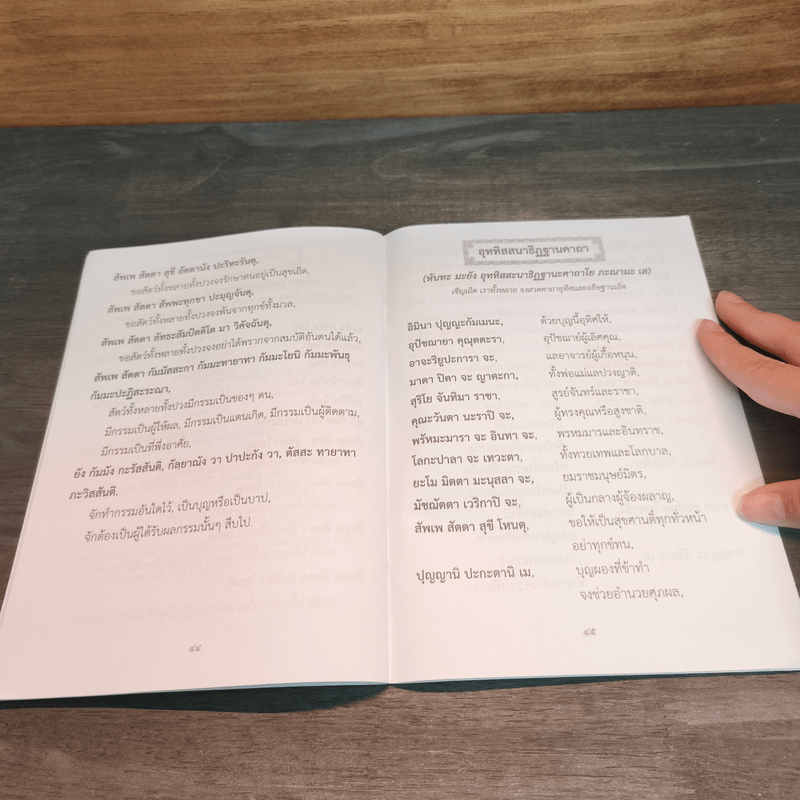 สัพเพ สัตตา สุขี อัตตานัง ปะริหะรันตุ,
ขอสัตว์ทั้งหลายทั้งปวงจงรักษาตนอยู่เป็นสุขเถิด,
สัพเพ สัตตา สัพพะทุกขา ปะมุญจันตุ,
ขอสัตว์ทั้งหลายทั้งปวงจงพ้นจากทุกข์ทั้งมวล,
สัพเพ สัตตา ลัทธะสัมปัตติโต มา วิคัจฉันตุ,
ขอสัตว์ทั้งหลายทั้งปวงจงอย่าได้พรากจากสมบัติอันตนได้แล้ว,
สัพเพ สัตตา กัมมัสสะกา กัมมะทายาทา กัมมะโยนิ กัมมะพันธุ
กัมมะปะฏิสะระณา,
สัตว์ทั้งหลายทั้งปวงมีกรรมเป็นของๆ ตน,
มีกรรมเป็นผู้ให้ผล, มีกรรมเป็นแดนเกิด, มีกรรมเป็นผู้ติดตาม,
มีกรรมเป็นที่พึ่งอาศัย,
ยัง กัมมัง กะริสสันติ, กัลฺยาณัง วา ปาปะกัง วา, ตัสสะ ทายาทา
ภะวิสสันติ.
จักทำกรรมอันใดไว้, เป็นบุญหรือเป็นบาป,
จักต้องเป็นผู้ได้รับผลกรรมนั้นๆ สืบไป.
๔๔
อุททิสสนาธิฏฐานคาถา
(หันทะ มะยัง อุททิสสะนาธิฏฐานะคาถาโย ภะณามะ เส)
เชิญเถิด เราทั้งหลาย จงสวดคาถาอุทิศและอธิษฐานเถิด
อิมินา ปุญญะกัมเมนะ, ด้วยบุญนี้อุทิศให้,
อุปัชฌายา คุณุตตะรา, อุปัชฌาย์ผู้เลิศคุณ,
อาจะริยูปะการา จะ, แลอาจารย์ผู้เกื้อหนุน,
มาตา ปิตา จะ ญาตะกา, ทั้งพ่อแม่แลปวงญาติ,
สุริโย จันทิมา ราชา, สูรย์จันทร์และราชา,
คุณะวันตา นะราปิ จะ, ผู้ทรงคุณหรือสูงชาติ,
พรัหมะมารา จะ อินทา จะ, พรหมมารและอินทราช,
โลกะปาลา จะ เทวะตา, ทั้งทวยเทพและโลกบาล,
ยะโม มิตตา มะนุสสา จะ, ยมราชมนุษย์มิตร,
มัชฌัตตา เวริกาปิ จะ, ผู้เป็นกลางผู้จ้องผลาญ,
สัพเพ สัตตา สุขี โหนตุ, ขอให้เป็นสุขศานติ์ทุกทั่วหน้า
อย่าทุกข์ทน,
ปุญญานิ ปะกะตานิ เม, บุญผองที่ข้าทำ
จงช่วยอำนวยศุภผล,
๔๕